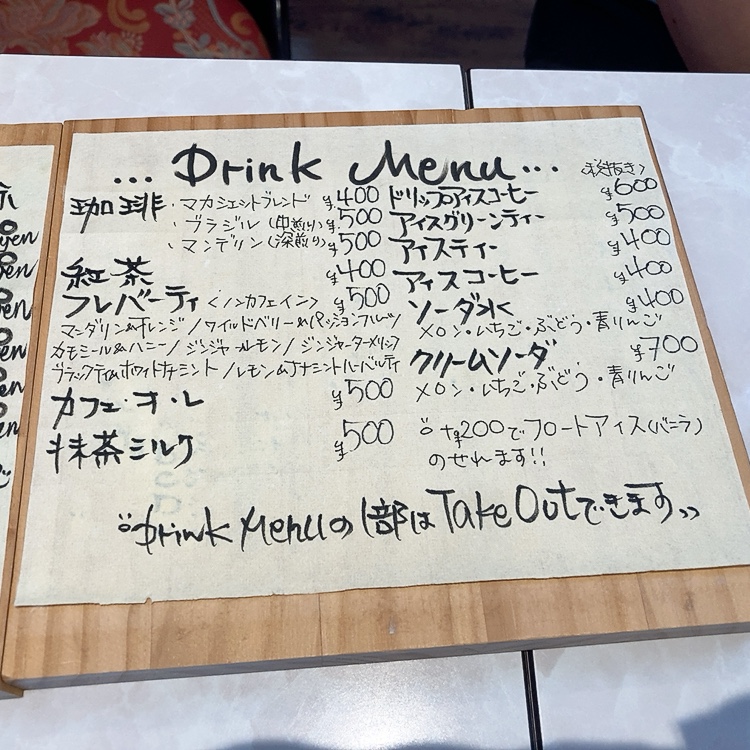 ...Drink Menu...
<税抜き>
珈琲 ・マカシェットブレンド ¥400
・ブラジル(中煎り) ¥500
・マンデリン(深煎り) ¥500
紅茶 ¥400
フレバーティ<ノンカフェイン> ¥500
マンダリン&オレンジ/ワイルドベリー&パッションフルーツ
カモミール&ハニー/ジンジャー&レモン/ジンジャーターメリック
ブラックティ&ホワイトナナミント/レモン&ナナミントハーバルティ
カフェ・オ・レ ¥500
抹茶ミルク ¥500
ドリップアイスコーヒー ¥600
アイスグリーンティー ¥500
アイスティー ¥400
アイスコーヒー ¥400
ソーダ水 ¥400
メロン・いちご・ぶどう・青りんご
クリームソーダ ¥700
メロン・いちご・ぶどう・青りんご
+¥200でフロートアイス(バニラ)
のせれます!!
"Drink Menuの1部はTake Outできます"